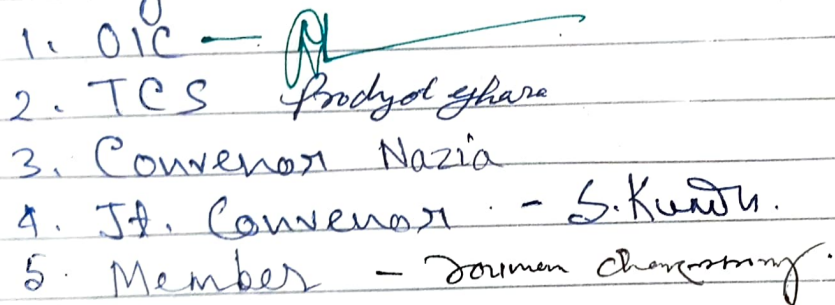 1. OIC —
2. TCS Prodyot Ghara
3. Convenor Nazia
4. Jt. Convenor - S. Kundu.
5. Member - Soumen